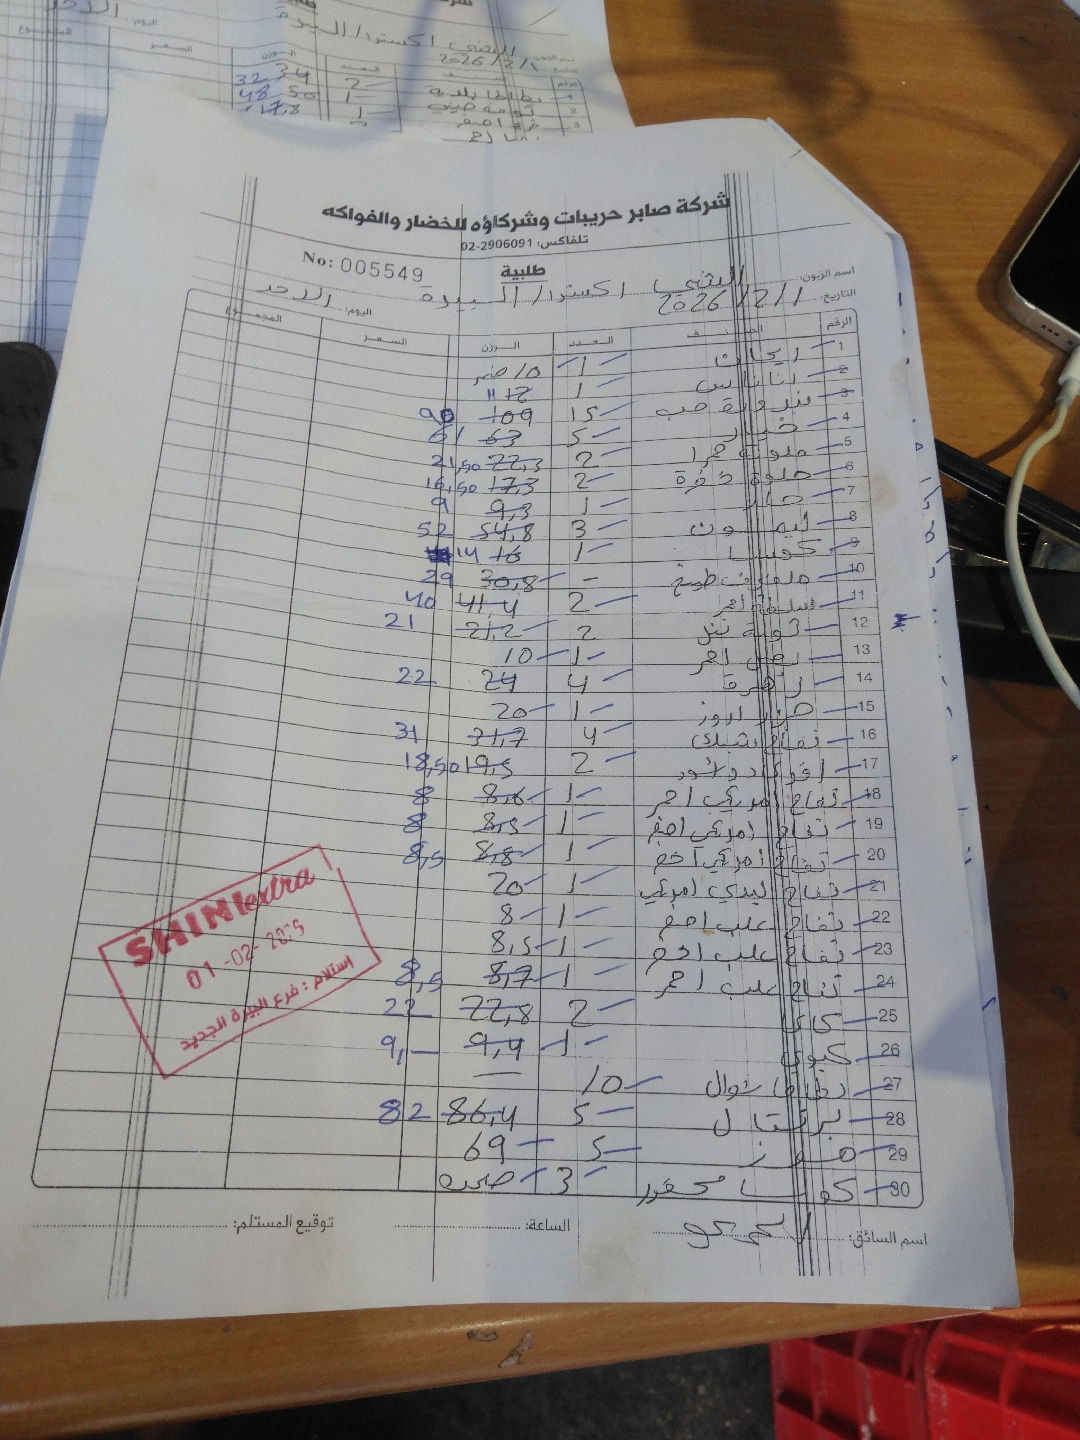 شركة صابر حريبات وشركاؤه للخضار والفواكه
تلفاكس: 02-2906091
طلبية
No: 005549
اسم الزبون: الشني اكسترا/ البيرة
التاريخ: 2026/2/1 اليوم: الاحد
الرقم الصنف العدد الوزن السعر المجموع
1 1 10/
2 اناناس 1 12
3 بندورة حب 15 109 90
4 خيار 5 63 61
5 حلوة حمرا 2 22,3 21,50
6 حلوة خضرة 2 17,3 16,50
7 حار 1 9,3 9
8 ليمون 3 54,8 52
9 كوسا 1 16 14
10 ملفوف طبيخ - 30,8 29
11 احمر 2 41,4 40
12 2 21,2 21
13 بصل احمر 1 10
14 زهرة 4 24 22
15 1 20
16 تفاح 4 31,7 31
17 افوكادو 2 19,5 18,50
18 تفاح امريكي احمر 1 8,6 8
19 تفاح امريكي اصفر 1 8,5 8
20 تفاح امريكي اخضر 1 8,8 8,5
21 تفاح ليدي امريكي 1 20
22 تفاح علب اصفر 1 8
23 تفاح علب اخضر 1 8,5
24 تفاح علب احمر 1 8,7 8,5
25 كاكا 2 22,8 22
26 كيوي 1 9,4 9,—
27 بطاطا شوال 10 —
28 برتقال 5 86,4 82
29 موز 5 69
30 كوسا محفور 3
اسم السائق:
الساعة:
توقيع المستلم:
SHINI extra
01-02-2025
استلام: فرع البيرة الجديد